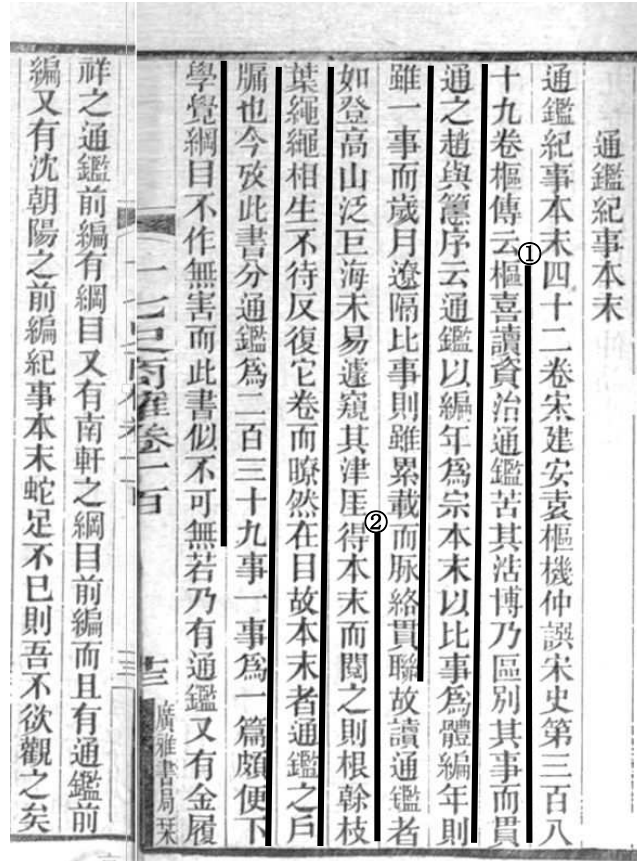 通鑑紀事本末
通鑑紀事本末四十二卷宋建安袁樞機仲譔宋史第三百八
十九卷樞傳云①樞喜讀資治通鑑苦其浩博乃區別其事而貫
通之趙與𥲅序云通鑑以編年爲宗本末以比事爲體編年則
雖一事而歲月遼隔比事則雖累載而脈絡貫聯故讀通鑑者
如登高山泛巨海未易遽窺其津厓②得本末而閱之則根榦枝
葉繩繩相生不待反復它卷而瞭然在目故本末者通鑑之戶
牖也今攷此書分通鑑爲二百三十九事一事爲一篇頗便下
學覺綱目不作無害而此書似不可無若乃有通鑑又有金履
十七史商榷卷一百
十三
廣雅書局栞
祥之通鑑前編有綱目又有南軒之綱目前編而且有通鑑前
編又有沈朝陽之前編紀事本末蛇足不已則吾不欲觀之矣